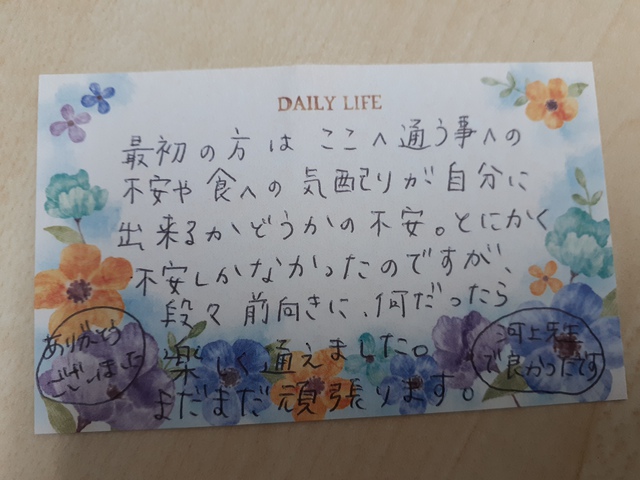 DAILY LIFE
最初の方は ここへ通う事への
不安や食への気配りが自分に
出来るかどうかの不安。とにかく
不安しかなかったのですが、
段々前向きに、何だったら
楽しく通えました。
まだまだ頑張ります。
ありがとう
ございました
河上先生
で良かったです